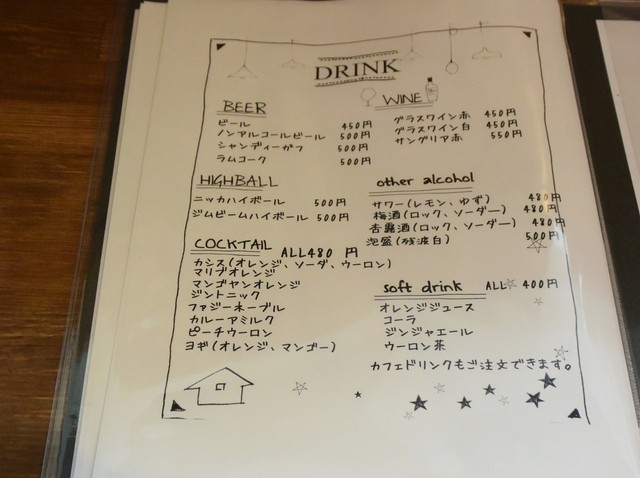 DRINK
BEER
ビール 450円
ノンアルコールビール 500円
シャンディーガフ 500円
ラムコーク 500円
HIGHBALL
ニッカハイボール 500円
ジムビームハイボール 500円
COCKTAIL ALL480 円
カシス(オレンジ、ソーダ、ウーロン)
マリブオレンジ
マンゴヤンオレンジ
ジントニック
ファジーネーブル
カルーアミルク
ピーチウーロン
ヨギ(オレンジ、マンゴー)
WINE
グラスワイン赤 450円
グラスワイン白 450円
サングリア赤 550円
other alcohol
サワー(レモン、ゆず) 480円
梅酒(ロック、ソーダ―) 480円
杏露酒(ロック、ソーダ―) 480円
泡盛(残波白) 500円
soft drink ALL 400円
オレンジジュース
コーラ
ジンジャエール
ウーロン茶
カフェドリンクもご注文できます。